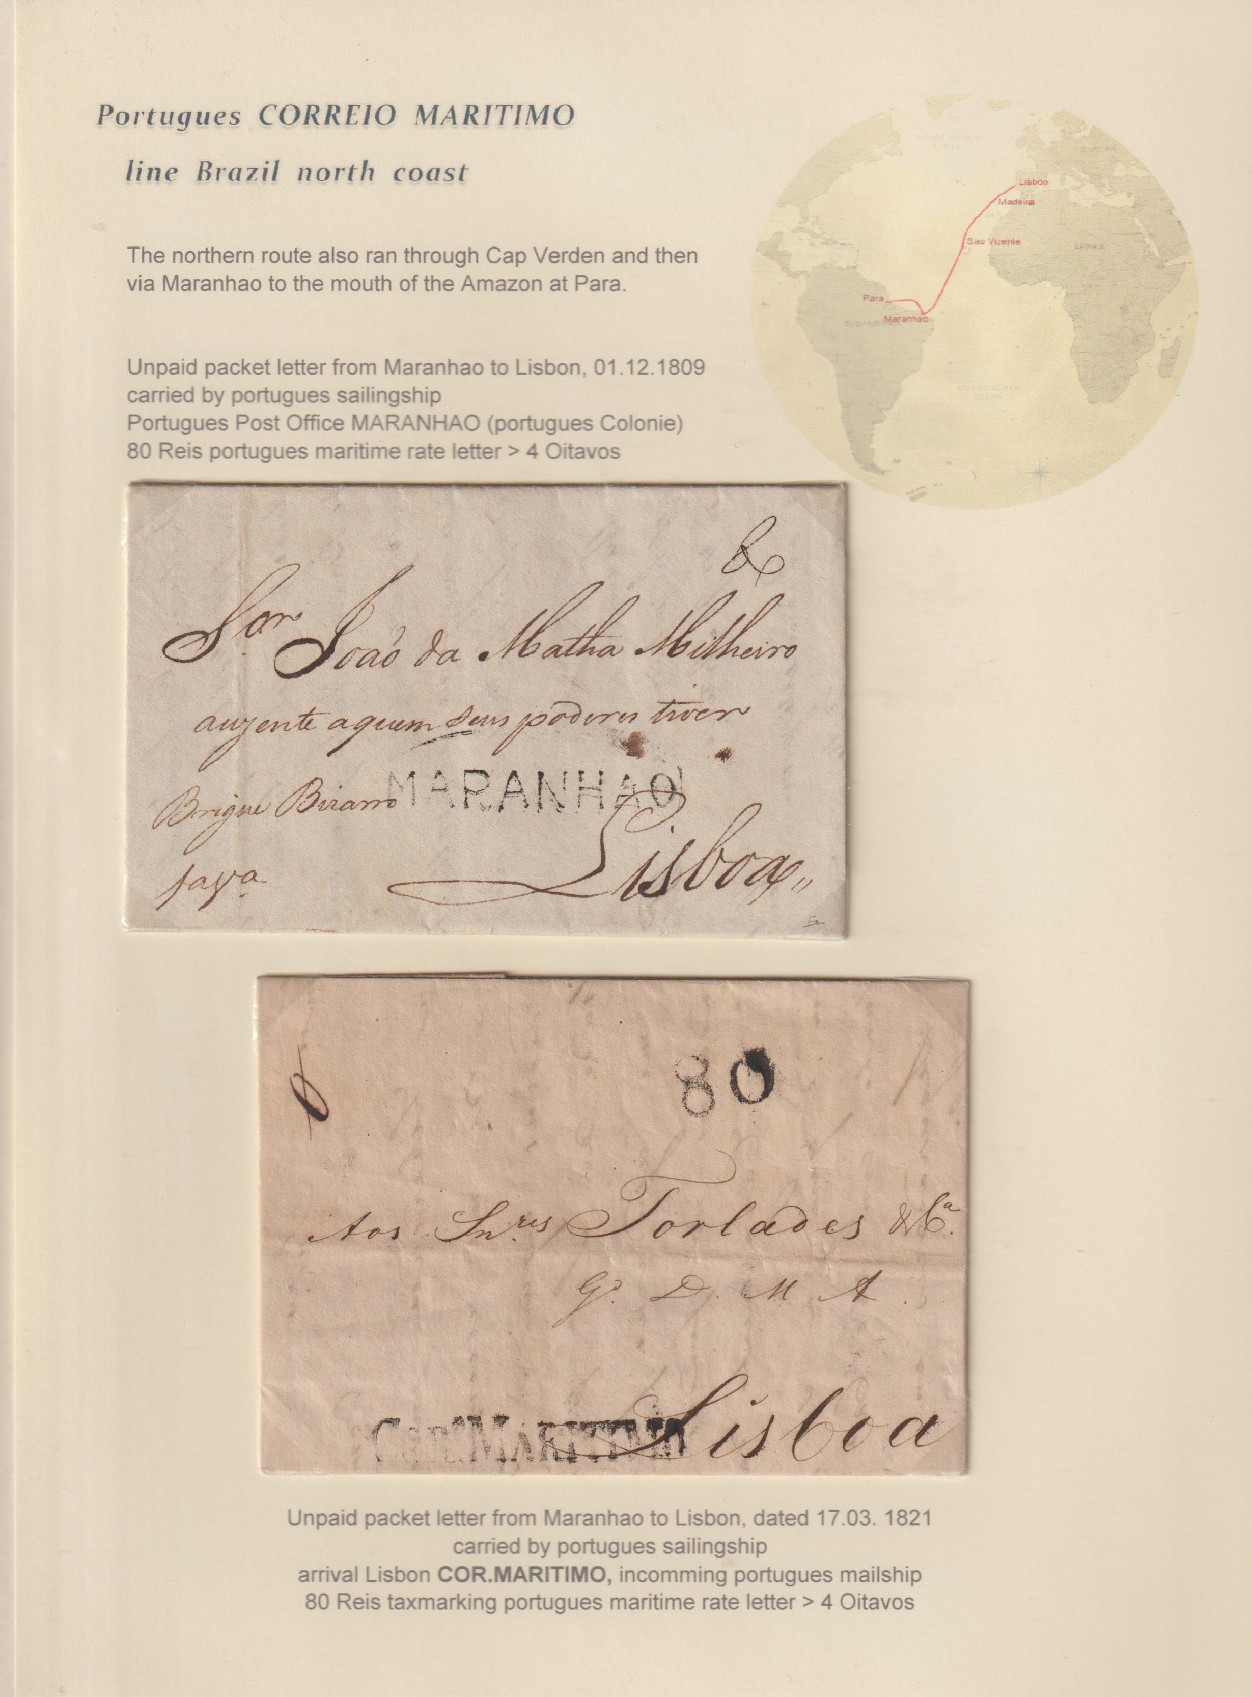 Portugues CORREIO MARITIMO
line Brazil north coast
The northern route also ran through Cap Verden and then
via Maranhao to the mouth of the Amazon at Para.
Lisbon
Madeira
Sao Vicente
AFRIKA
Para
Maranhao
Unpaid packet letter from Maranhao to Lisbon, 01.12.1809
carried by portugues sailingship
Portugues Post Office MARANHAO (portugues Colonie)
80 Reis portugues maritime rate letter > 4 Oitavos
Sor. João da Matha Milheiro
auzente aquem seus poderes tiver
MARANHAO
Brigue Bizarro
Lisboa,,
80
Aos Snres. Torlades & Ca.
Gd. D. M. A.
COR. MARITIMO
Lisboa
Unpaid packet letter from Maranhao to Lisbon, dated 17.03. 1821
carried by portugues sailingship
arrival Lisbon COR.MARITIMO, incomming portugues mailship
80 Reis taxmarking portugues maritime rate letter > 4 Oitavos